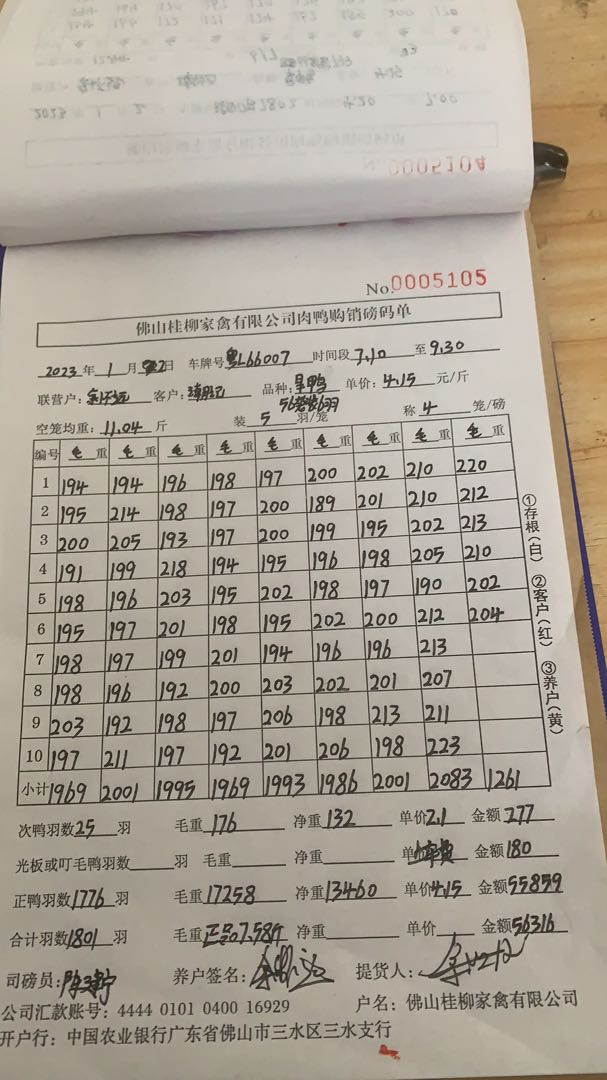 0005104
No.0005105
佛山桂柳家禽有限公司肉鸭购销磅码单
2023年1月22日 车牌号粤L66007 时间段7.10至9.30
联营户: 客户: 品种: 单价:4.15元/斤
空笼均重:11.04斤 装5羽/笼 称4笼/磅
编号 毛重 毛重 毛重 毛重 毛重 毛重 毛重 毛重 毛重
1 194 194 196 198 197 200 202 210 220
2 195 214 198 197 200 189 201 210 212
3 200 205 193 197 200 199 195 202 213
4 191 199 218 194 195 196 198 205 210
5 198 196 203 195 202 198 197 190 202
6 195 197 201 198 195 202 200 212 204
7 198 197 199 201 194 196 196 213
8 198 196 192 200 203 202 201 207
9 203 192 198 197 206 198 213 211
10 197 211 197 192 201 206 198 223
小计 1969 2001 1995 1969 1993 1986 2001 2083 1261
①存根(白) ②客户(红) ③养户(黄)
次鸭羽数25羽 毛重176 净重132 单价2.1 金额277
光板或叮毛鸭羽数 羽 毛重 净重 金额180
正鸭羽数1776羽 毛重17258 净重13460 单价4.15 金额55859
合计羽数1801羽 毛重正品7.58斤 净重 单价 金额56316
司磅员: 养户签名: 提货人:
公司汇款账号: 4444 0101 0400 16929 户名: 佛山桂柳家禽有限公司
开户行: 中国农业银行广东省佛山市三水区三水支行